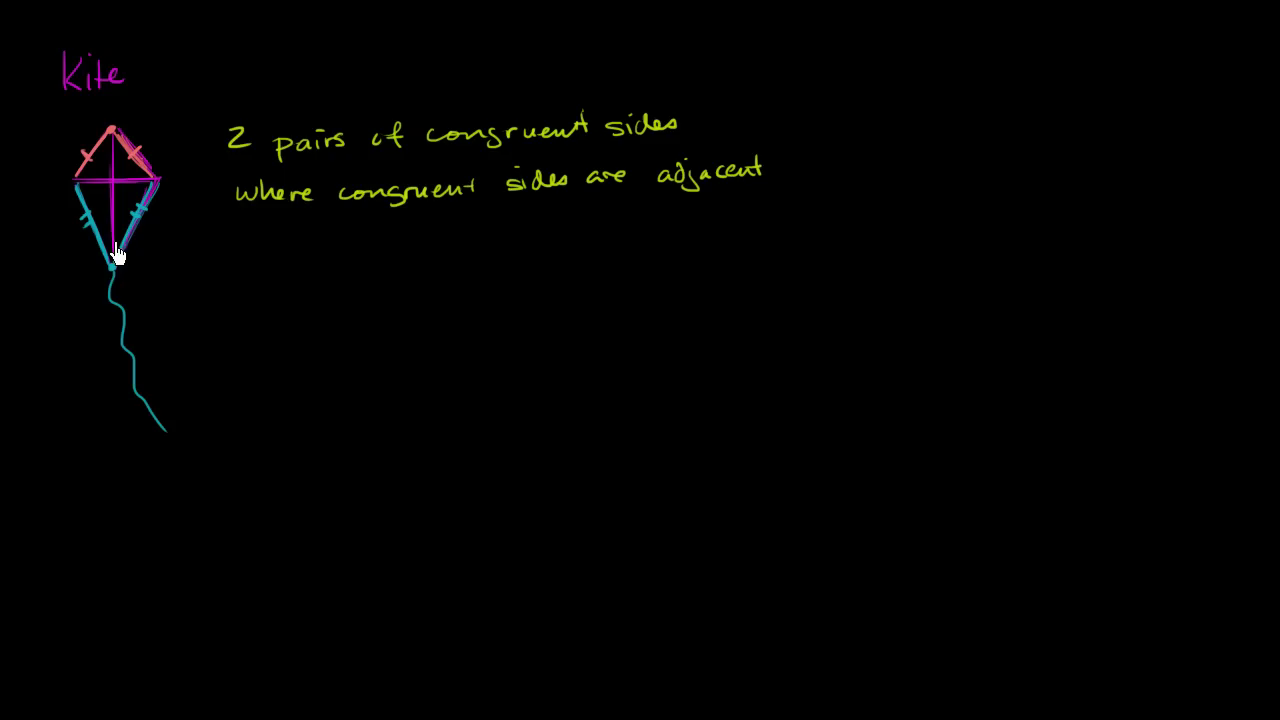 Kite
2 pairs of congruent sides
where congruent sides are adjacent